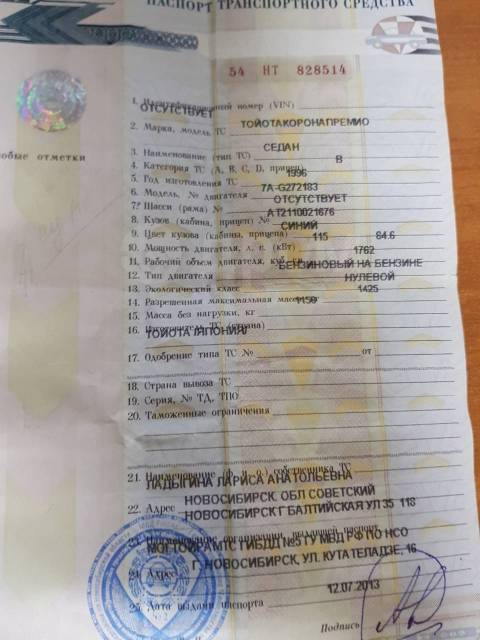 ПАСПОРТ ТРАНСПОРТНОГО СРЕДСТВА
54 НТ 828514
1. Идентификационный номер (VIN)
ОТСУТСТВУЕТ
2. Марка, модель ТС ТОЙОТАКОРОНАПРЕМИО
3. Наименование (тип ТС) СЕДАН
4. Категория ТС (А, В, С, D, прицеп) В
5. Год изготовления ТС 1996
6. Модель, № двигателя 7А-G272183
7. Шасси (рама) № ОТСУТСТВУЕТ
8. Кузов (кабина, прицеп) № АТ2110021676
9. Цвет кузова (кабины, прицепа) СИНИЙ
10. Мощность двигателя, л. с. (кВт) 115 84.6
11. Рабочий объем двигателя, куб. см 1762
12. Тип двигателя БЕНЗИНОВЫЙ НА БЕНЗИНЕ
13. Экологический класс НУЛЕВОЙ
14. Разрешенная максимальная масса, кг 1425
15. Масса без нагрузки, кг 1150
16. Изготовитель ТС (страна)
ТОЙОТА ЯПОНИЯ
17. Одобрение типа ТС № от
18. Страна вывоза ТС
19. Серия, № ТД, ТПО
20. Таможенные ограничения
обые отметки
21. Наименование (ф. и. о.) собственника ТС
ЛАДЫГИНА ЛАРИСА АНАТОЛЬЕВНА
22. Адрес НОВОСИБИРСК. ОБЛ СОВЕТСКИЙ
НОВОСИБИРСК Г БАЛТИЙСКАЯ УЛ 35 118
23. Наименование организации, выдавшей паспорт
МОГТОЙРАМТС ГИБДД №5 ГУ МВД РФ ПО НСО
24. Адрес Г. НОВОСИБИРСК, УЛ. КУТАТЕЛАДЗЕ, 16
25. Дата выдачи паспорта 12.07.2013
Подпись